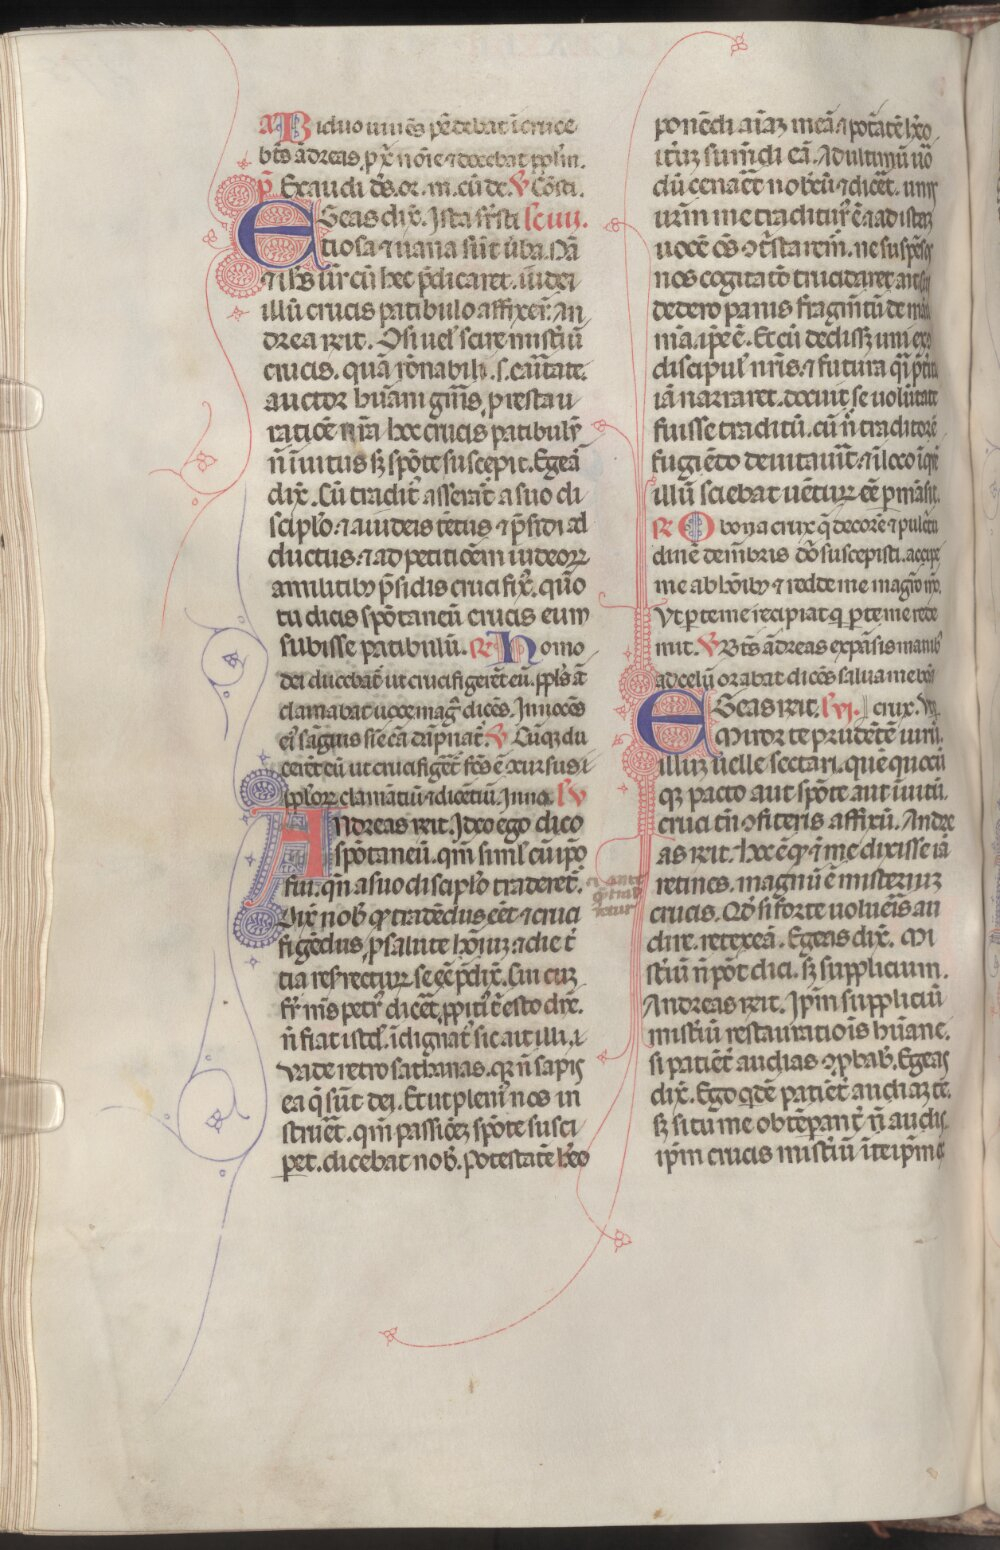 a Biduo uiuēs pēdebat ī cruce
bt̄s ādreas ꝓ xp̄i nōīe ⁊ docebat ppl̄m.
p̄. Exaudi dn̄s. or. m. cū de. ℣ Cōsti.
EGeas dix̄. Ista sr̄sti le iiij.
tiosa ⁊ uana sūt ūba. Nā
⁊ ih̄s ur̄ cū hec p̄dicaret. iudei
illū crucis patibulo affixer̄t. An
dreas r̄ñt. O si uel̄ scire mist̄iū
crucis. quā rōnabili .s. caritate.
auctor hūani gn̄is, p restau
ratiōe nr̄a hoc crucis patibulū
n̄ īuitus sꝫ spōte suscepit. Egeas
dix̄. Cū tradit̄ asserat̄ a suo di
scipl̄o. ⁊ a iudeis tētus ⁊ p̄sidi ad
ductus. ⁊ ad petitiōem iudeoꝝ
a militibꝫ p̄sidis crucifix̄. quō
tu dicis spōtaneū crucis eum
subisse patibulū. ℟ Homo
dei ducebat̄ ut crucifigerēt eū. ppl̄s āt
clamabat uoce mag̃ dicēs. Innocēs
eiꝰ sāguis sīe cā dāpnat̄. ℣ Cūqꝫ du
cerēt eū ut crucifiget̄ fcs̄ ē cōcursus i
pploꝝ clamātiū ⁊ dicētiū. Inno. l V
ANdreas r̄ñt. Ideo ego dico
spōtaneū. qm̄ siml̄ cū ipō
fui. qn̄ a suo discipl̄o traderet̄.
Dix̄ nob̄ ꝙ tradēdus eēt ⁊ cruci
figēdus, ꝓ salute hōīuꝫ ⁊ die t̄
tia resrecturꝰ se eē p̄dix̄. Cui cuꝫ
fr̄ ms̄ petrꝰ dicēt, ꝓpitiꝰ t̄ esto dn̄e.
n̄ fiat istđ. īdignatꝰ sic ait illi.
Vade retro sathanas. qꝛ n̄ sapis
ea q̄ sūt dei. Et ut pleniꝰ nos in
strueret̄. qm̄ passiōeꝫ spōte susci
peret. dicebat nob̄. Potestatē hēo
ponēdi aīaꝫ meā ⁊ potatē hēo
iteruꝫ sumēdi eā. Ad ultimū uō
dū cenaret̄ nobcū ⁊ dicēt. unus
urm̄ me traditurꝰ ē. ⁊ ad istaꝫ
uocē oēs cōtstaremr̄. ne suspēsꝰ
nos cogitatō trucidaret, ait
dedero panis fragmētū de manu
mā. ip̄e ē. Et cū dedissꝫ uni ex
discipulꝰ nr̄is. ⁊ futura q̄si p̄ita
iā narraret. docuit se uolūtate
fuisse traditū. cū n̄ traditorē
fugiēdo deuitauit̄. ⁊ ī loco ī quo
illū sciebat uēturū eē ꝑmāsit.
℟ O bona crux q̄ decorē ⁊ pulcritu
dinē de mēbris dn̄i suscepisti. accipe
me ab hōibꝫ ⁊ redde me magr̄o meo.
Vt ꝑ te me recipiat q̄ ꝑ te me rede
mit. ℣ Bt̄s ādreas expāsis manibꝫ
ad celū orabat dicēs salua me bōa
EGeas r̄ñt. l vi. crux. Vt.
Miror te prudētē uirū.
illuꝫ uelle sectari. quē quocū
qꝫ pacto aut spōte aut īuitū
cruci tn̄ cōfiteris affixū. Andre
as r̄ñt. Hoc ē ꝙ me dixisse iā
retines. magnū ē misteriuꝫ
crucis. Qđ si forte uolueris au
dire. retexeā. Egeas dix̄. Mi
st̄iū n̄ pōt dici. sꝫ supplicium.
Andreas r̄ñt. Ip̄m suppliciū
mist̄iū restauratiōis hūane.
si patiēt̄ audias cōprobabꝰ. Egeas
dix̄. Ego qđē patiēt̄ audiaꝫ te.
sꝫ si tu me obtēpant̄ n̄ audis
ip̄m crucis mist̄iū ī te ip̄m